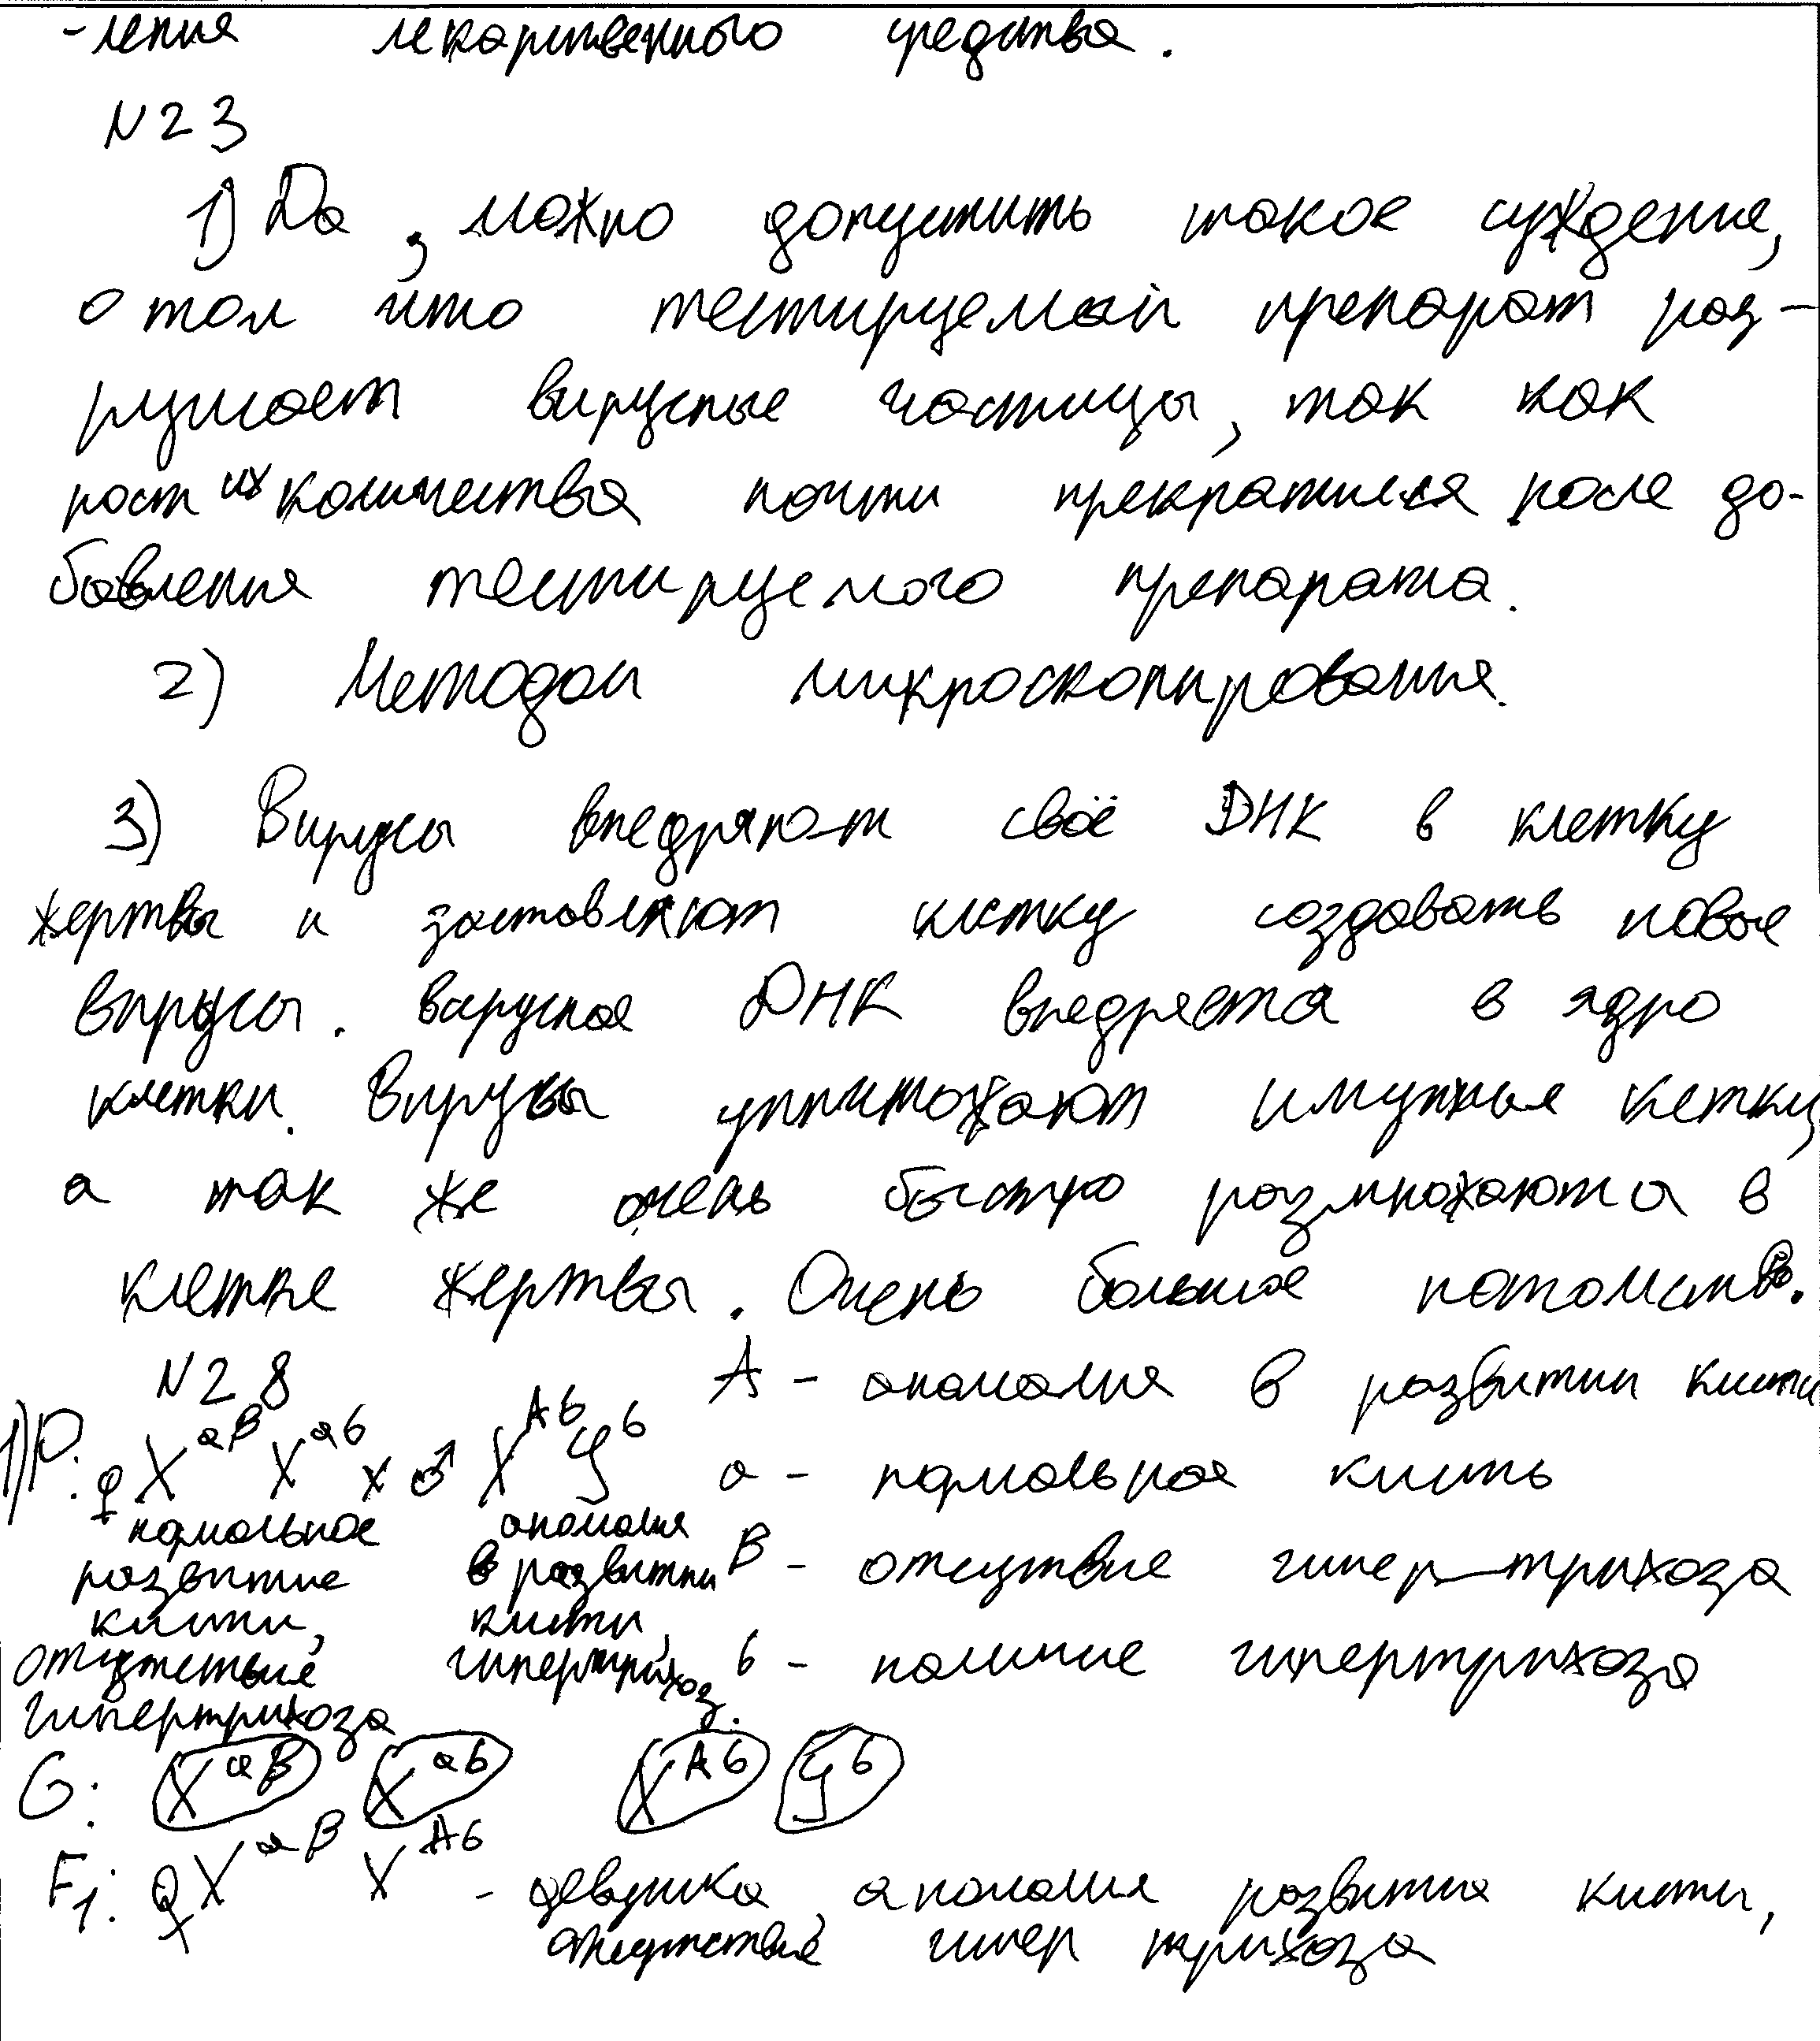 -ления лекарственного средства.
N23
1) Да, можно допустить такое суждение,
о том что тестируемый препарат раз-
рушает вирусные частицы, так как
рост их количества почти прекратился после до-
бавления тестируемого препарата.
2) Методом микроскопирования.
3) Вирусы внедряют своё ДНК в клетку
жертвы и заставляют клетку создавать новые
вирусы. вирусное ДНК внедряется в ядро
клетки. Вирусы уничтожают имунные кетки,
а так же очень быстро размножаются в
клетке жертвы. Очень большое потомство.
N28 A - аномалия в развитии кисти
1) P: ♀ X^aB X^ab x ♂ X^Ab Y^b a - нормальная кисть
нормальное аномалия
развитие в развитии B - отсутвие гипер-трихоза
кисти, кисти,
отсутствие гипертрихоз. b - наличие гипертрихоза
гипертрихоза
G: X^aB X^ab X^Ab Y^b
F1: ♀ X^aB X^Ab - девушка, аномалия развития кисти,
отсутствие гипер трихоза